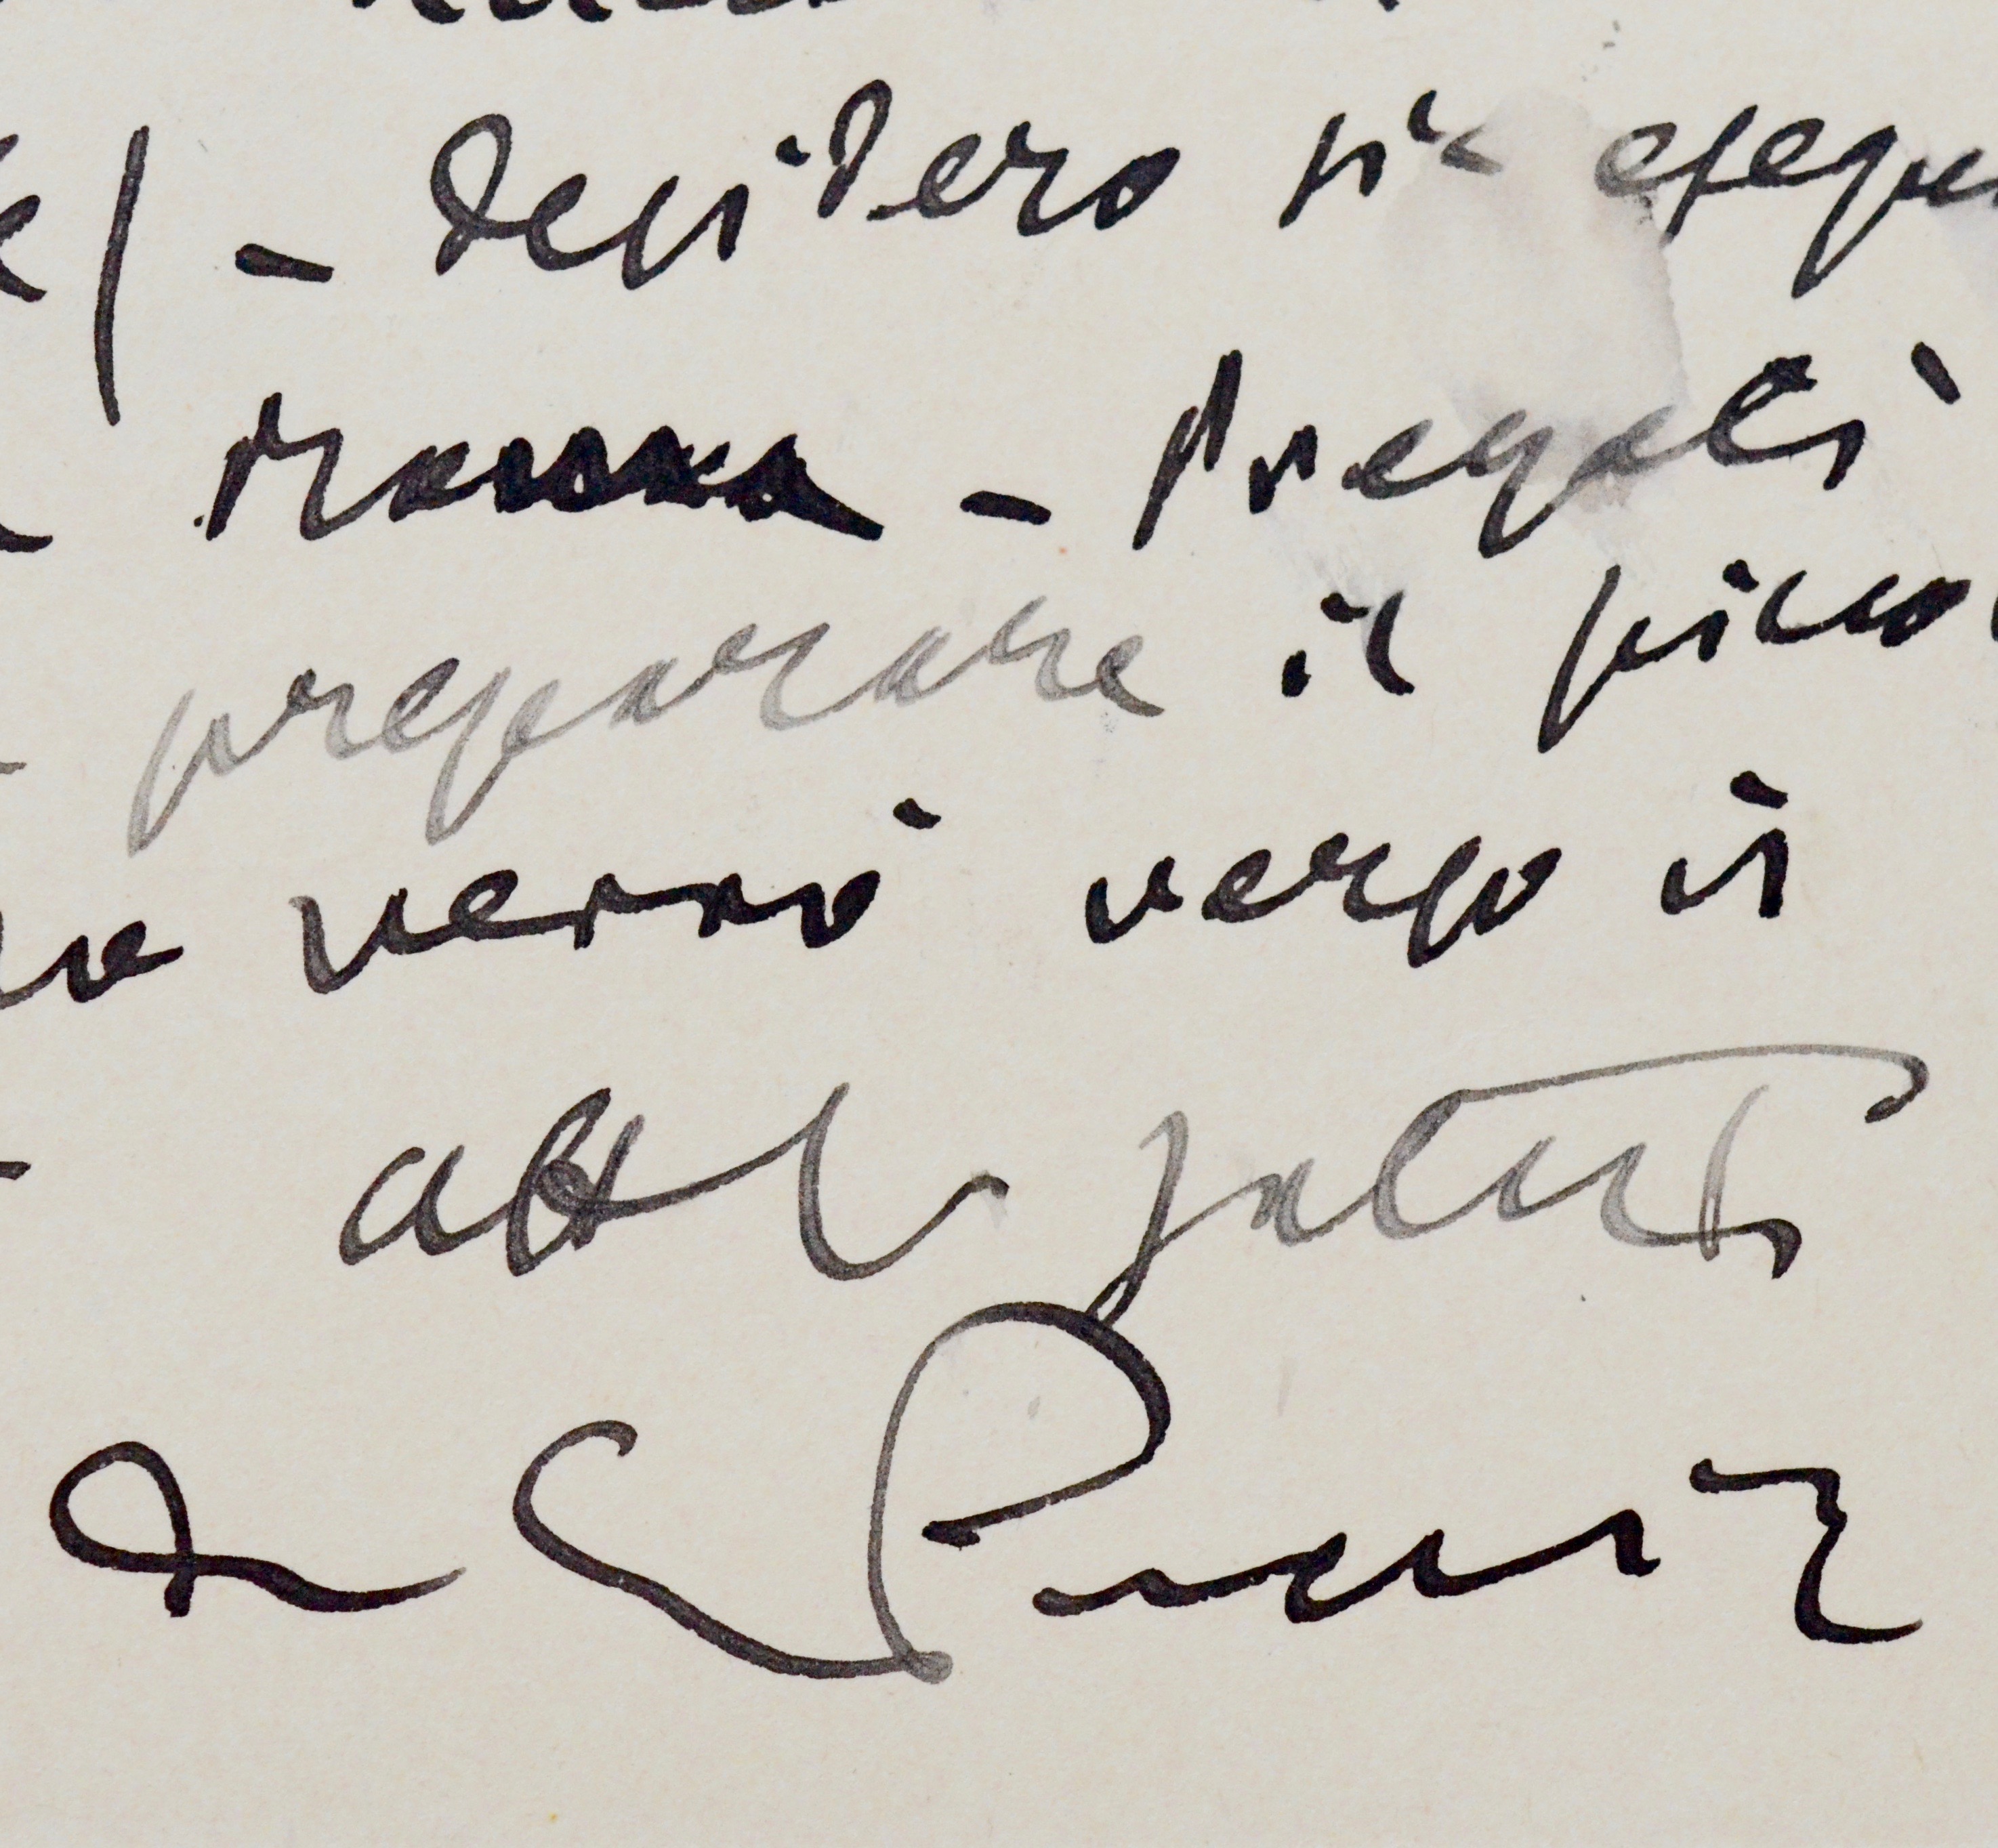 – desidero sia esegu
– Pregoli
preparare il picco
verrò verso il
affti saluti
G Puccini